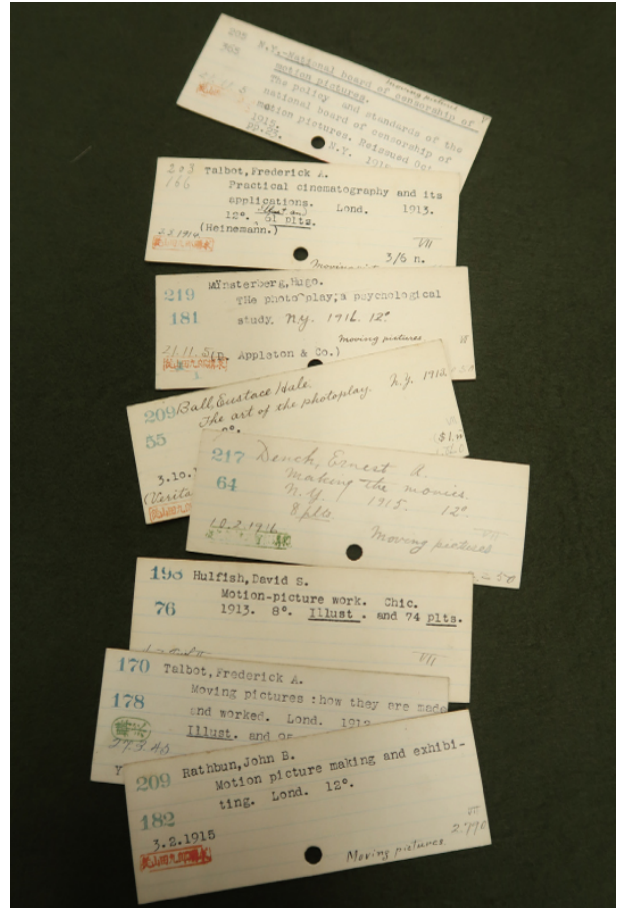 205
365
N.Y.-National board of censorship of
motion pictures.
The policy and standards of the
national board of censorship of
motion pictures. Reissued Oct.
1915.
N.Y.
pp.23.
203
166
Talbot, Frederick A.
Practical cinematography and its
applications. Lond. 1913.
12°. 61 plts.
(Heinemann.)
2.5.1914.
VII
3/6 n.
219
181
MYnsterberg, Hugo.
THe photoplay; a psychological
study. N.Y. 1916. 12°
Moving pictures
VII
21.11.5
(D. Appleton & Co.)
209
55
Ball, Eustace Hale.
The art of the photoplay. N.Y. 1913
3.10.
(Verita
217
64
Dench, Ernest A.
Making the movies.
N.Y. 1915. 12°
8 plts.
10.2.1916
VII
Moving pictures
198
76
Hulfish, David S.
Motion-picture work. Chic.
1913. 8°. Illust. and 74 plts.
VII
170
178
Talbot, Frederick A.
Moving pictures :how they are made
and worked. Lond. 1912
Illust. and 95
27.3.
209
182
Rathbun, John B.
Motion picture making and exhibi-
ting. Lond. 12°.
3.2.1915
VII
2.770
Moving pictures